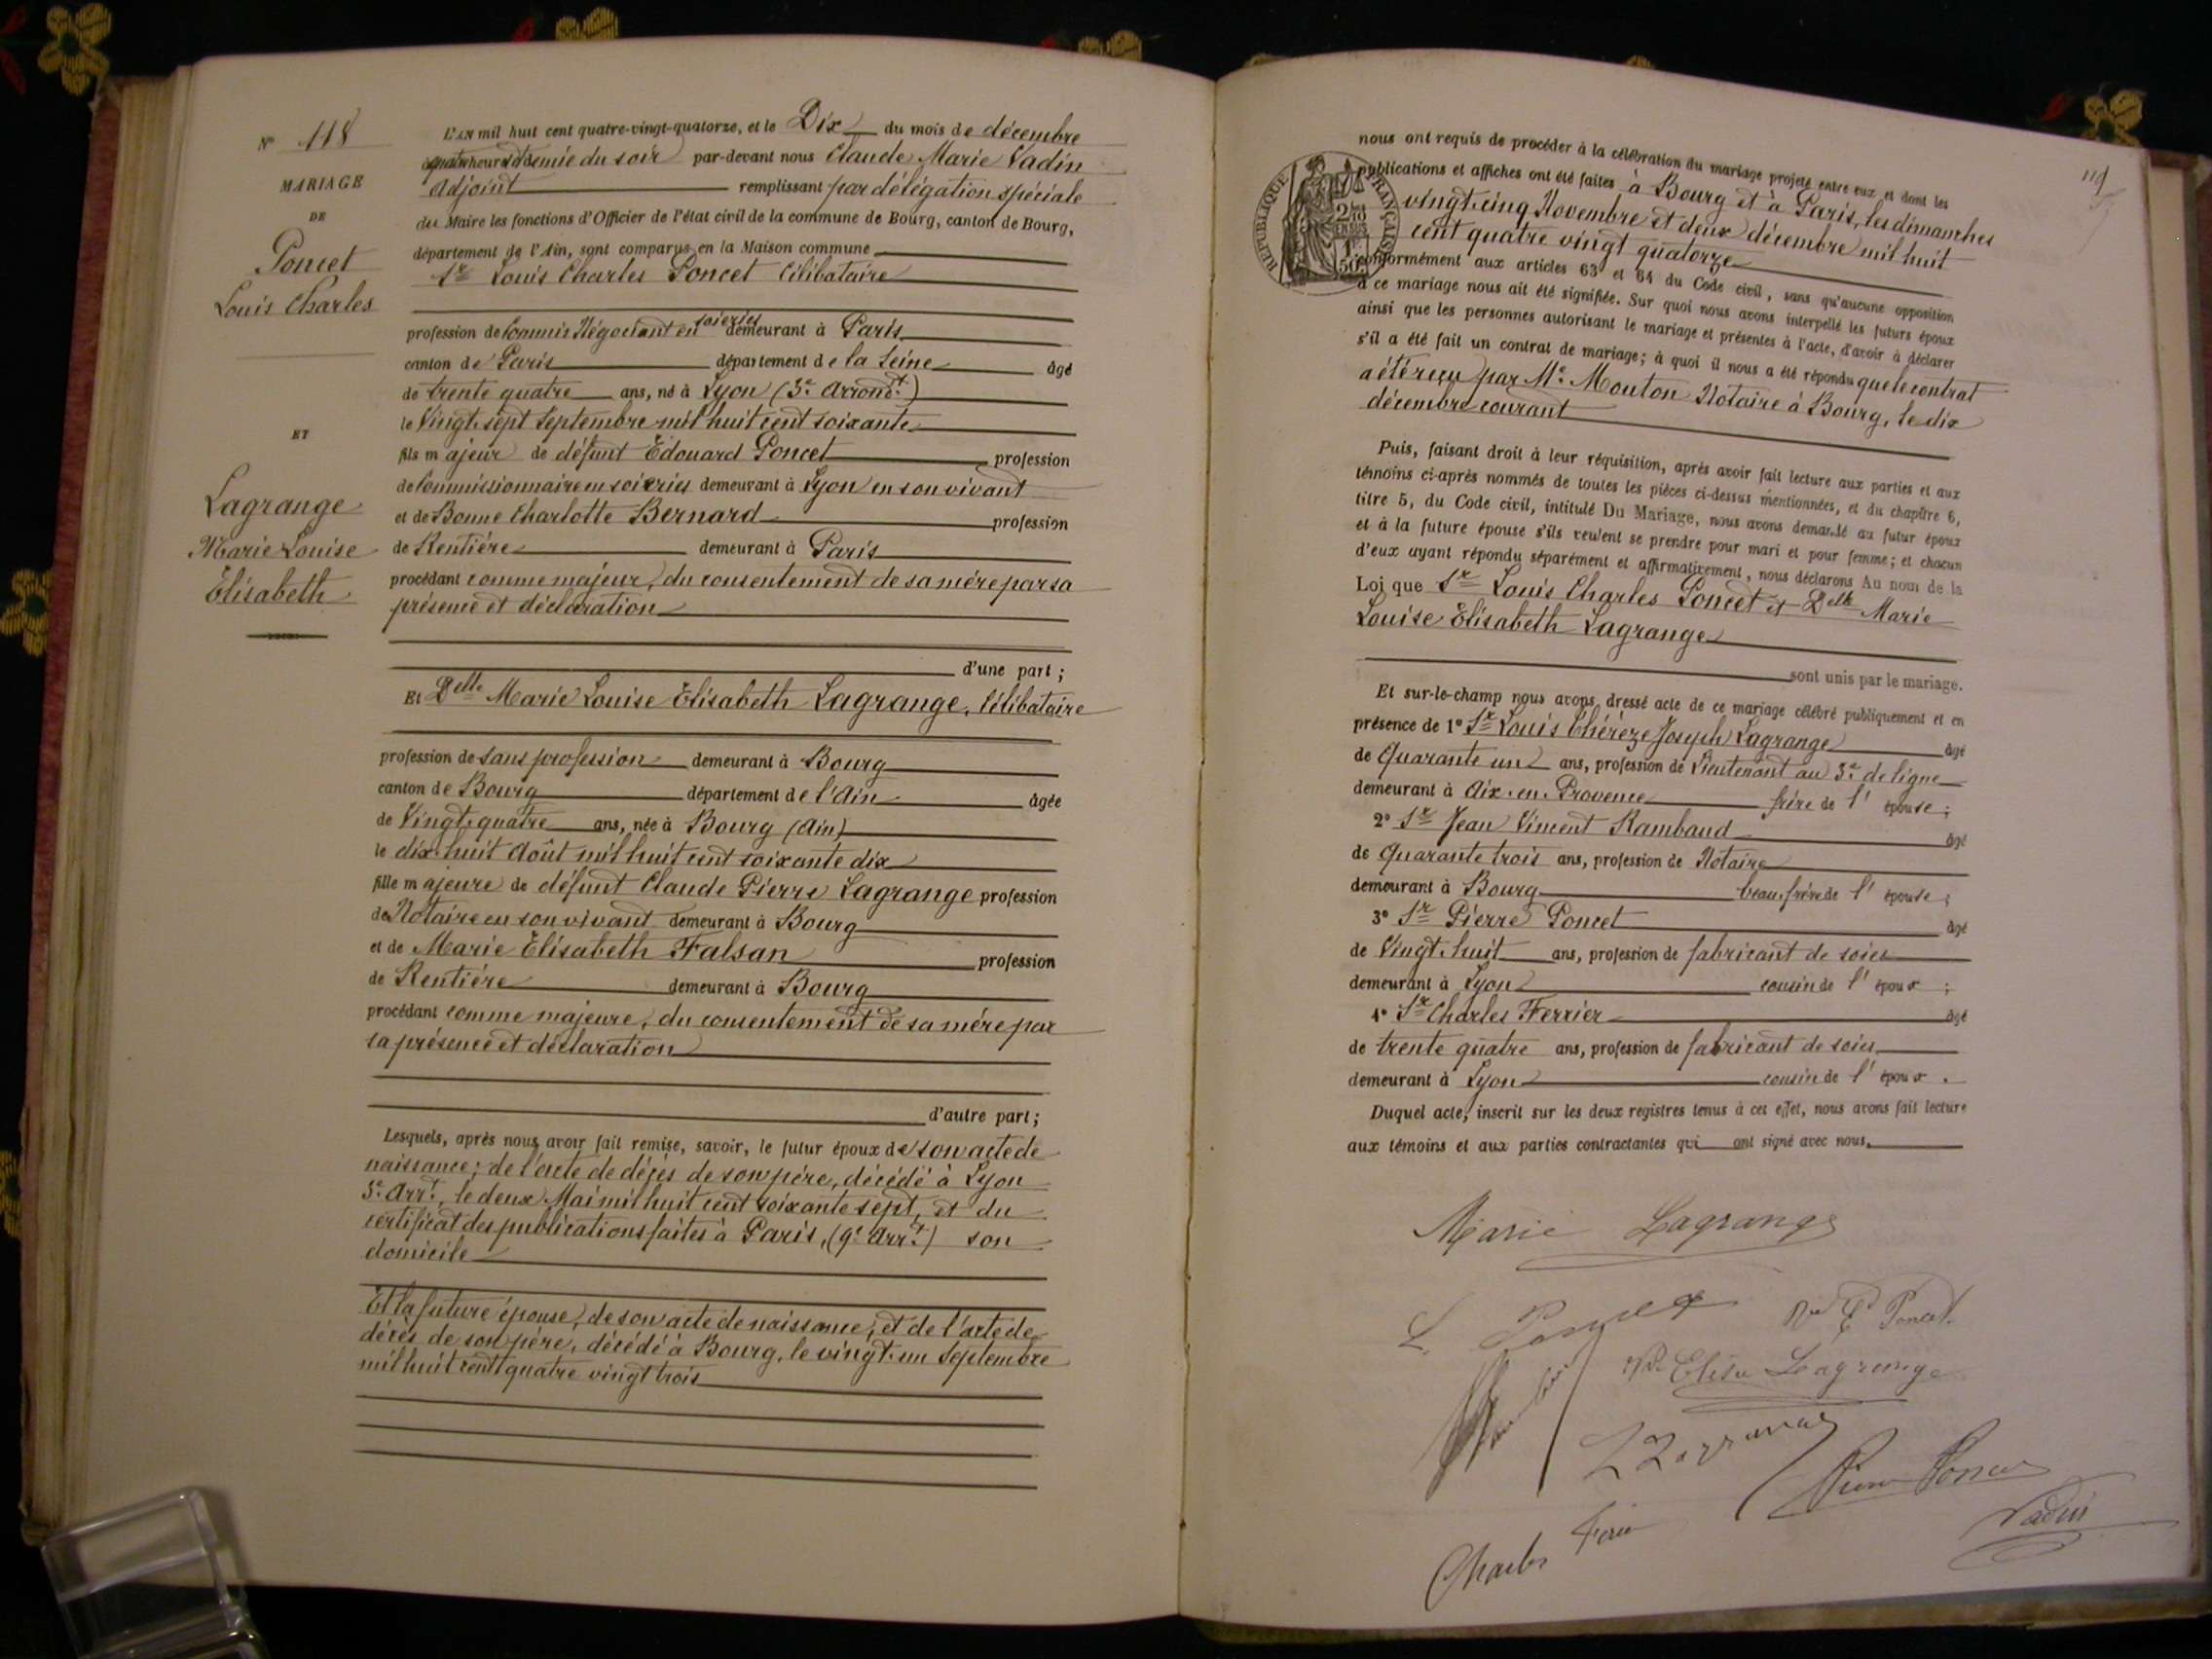 N° 118
MARIAGE
DE
Poncet
Louis Charles
ET
Lagrange
Marie Louise
Elisabeth
L'AN mil huit cent quatre-vingt-quatorze, et le Dix du mois de décembre
à quatre heures et demie du soir par-devant nous Claude Marie Vadin
Adjoint remplissant par délégation spéciale
du Maire les fonctions d'Officier de l'état civil de la commune de Bourg, canton de Bourg,
département de l'Ain, sont comparus en la Maison commune
Sr Louis Charles Poncet Célibataire
profession de Commis Négociant en soieries demeurant à Paris
canton de Paris département de la Seine âgé
de trente quatre ans, né à Lyon (3e Arrondt.)
le Vingt sept Septembre mil huit cent soixante
fils majeur de défunt Edouard Poncet profession
de Commissionnaire en soieries demeurant à Lyon en son vivant
et de Bonne Charlotte Bernard profession
de Rentière demeurant à Paris
procédant comme majeur, du consentement de sa mère par sa
présence et déclaration
d'une part ;
Et Delle Marie Louise Elisabeth Lagrange, Célibataire
profession de sans profession demeurant à Bourg
canton de Bourg département de l'Ain âgée
de Vingt quatre ans, née à Bourg (Ain)
le dix-huit Août mil huit cent soixante dix
fille majeure de défunt Claude Pierre Lagrange profession
de Notaire en son vivant demeurant à Bourg
et de Marie Elisabeth Falsan profession
de Rentière demeurant à Bourg
procédant comme majeure, du consentement de sa mère par
sa présence et déclaration
d'autre part ;
Lesquels, après nous avoir fait remise, savoir, le futur époux de son acte de
naissance ; de l'acte de décès de son père, décédé à Lyon
3e Arrt., le deux Mai mil huit cent soixante sept, et du
certificat des publications faites à Paris, (9e Arrt.) son
domicile
Et la future épouse, de son acte de naissance, et de l'acte de
décès de son père, décédé à Bourg, le vingt-un Septembre
mil huit cent quatre vingt trois
119
RÉPUBLIQUE FRANÇAISE
2/10
EN SUS
1F
50C
nous ont requis de procéder à la célébration du mariage projeté entre eux et dont les
publications et affiches ont été faites à Bourg et à Paris, les dimanches
vingt-cinq Novembre et deux décembre mil huit
cent quatre vingt quatorze
conformément aux articles 63 et 64 du Code civil, sans qu'aucune opposition
à ce mariage nous ait été signifiée. Sur quoi nous avons interpellé les futurs époux
ainsi que les personnes autorisant le mariage et présentes à l'acte, d'avoir à déclarer
s'il a été fait un contrat de mariage ; à quoi il nous a été répondu que le contrat
a été reçu par Me. Mouton Notaire à Bourg, le dix
décembre courant
Puis, faisant droit à leur réquisition, après avoir fait lecture aux parties et aux
témoins ci-après nommés de toutes les pièces ci-dessus mentionnées, et du chapitre 6,
titre 5, du Code civil, intitulé Du Mariage, nous avons demandé au futur époux
et à la future épouse s'ils veulent se prendre pour mari et pour femme ; et chacun
d'eux ayant répondu séparément et affirmativement, nous déclarons Au nom de la
Loi que Sr Louis Charles Poncet et Delle Marie
Louise Elisabeth Lagrange
sont unis par le mariage.
Et sur-le-champ nous avons dressé acte de ce mariage célébré publiquement et en
présence de 1° Sr Louis Thérèze Joseph Lagrange âgé
de Quarante un ans, profession de Lieutenant au 3e de ligne
demeurant à Aix-en-Provence frère de l'épouse ;
2° Sr Jean Vincent Rambaud âgé
de Quarante trois ans, profession de Notaire
demeurant à Bourg beau-frère de l'épouse ;
3° Sr Pierre Poncet âgé
de Vingt-huit ans, profession de fabricant de soies
demeurant à Lyon cousin de l'époux ;
4° Sr Charles Ferrier âgé
de trente quatre ans, profession de fabricant de soies
demeurant à Lyon cousin de l'époux .
Duquel acte, inscrit sur les deux registres tenus à cet effet, nous avons fait lecture
aux témoins et aux parties contractantes qui ont signé avec nous.
Marie Lagrange
L. Poncet
Ve E Poncet
Ve Elisa Lagrange
Lagrange
Pierre Poncet
Vadin
Charles